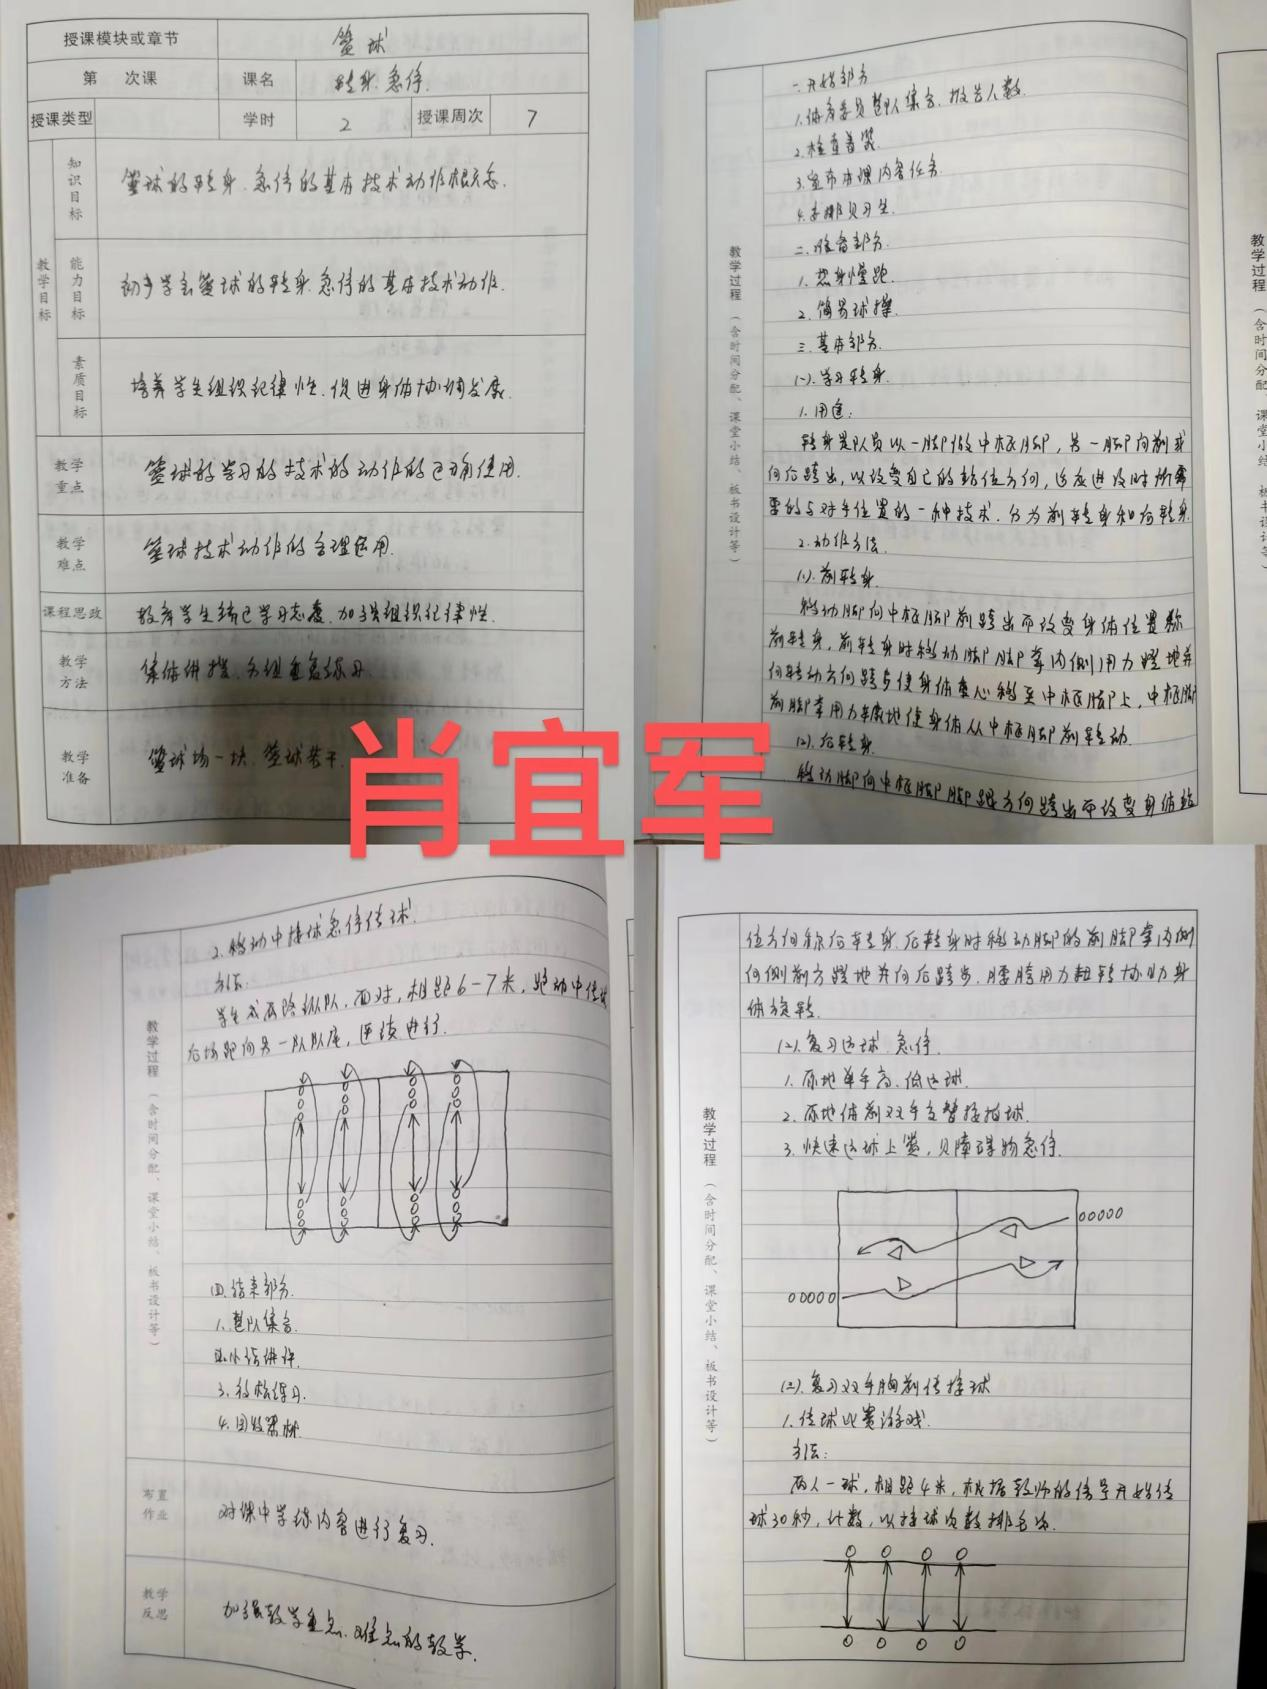 授课模块或章节 篮球
第 次课 课名 转身.急停.
授课类型 学时 2 授课周次 7
教学目标
知识目标 篮球的转身.急停的基本技术动作概念.
能力目标 初步学会篮球的转身.急停的基本技术动作.
素质目标 培养学生组织纪律性.促进身体协调发展.
教学重点 篮球的学习的技术的动作的正确使用.
教学难点 篮球技术动作的合理运用.
课程思政 教育学生端正学习态度.加强组织纪律性.
教学方法 集体讲授.分组重复练习.
教学准备 篮球场一块.篮球若干.
肖宜军
教学过程（含时间分配、课堂小结、板书设计等）
一.开始部分
1.体育委员整队集合.报告人数.
2.检查着装
3.宣布本课内容任务.
4.安排见习生.
二.准备部分.
1.热身慢跑.
2.简易球操.
三.基本部分.
(一).学习转身.
1.用途:
转身是队员以一脚做中枢脚,另一脚向前或
向后跨出,以改变自己的站位方向,适应进攻时所需
要的与对手位置的一种技术.分为前转身和后转身.
2.动作方法.
(1).前转身.
移动脚向中枢脚前跨出而改变身体位置称
前转身,前转身时移动脚脚掌内侧用力蹬地并
向转动方向跨步使身体重心移至中枢脚上,中枢脚
前脚掌用力碾地使身体从中枢脚前转动.
(2).后转身.
移动脚向中枢脚脚跟方向跨出而改变身体站
位方向称后转身.后转身时移动脚的前脚掌内侧
向侧前方蹬地并向后跨步.腰胯用力扭转协助身
体旋转.
(二).复习运球.急停.
1.原地单手高.低运球.
2.原地体前双手交替接拍球.
3.快速运球上篮,见障碍物急停.
00000
00000
(三).复习双手胸前传接球
1.传球比赛游戏.
方法:
两人一球,相距4米,根据教师的信号开始传
球30秒,计数,以接球次数排名次.
教学过程（含时间分配、课堂小结、板书设计等）
2.移动中接球急停传球.
方法:
学生成两路纵队,面对,相距6-7米,跑动中传球
后场跑向另一队队尾,连续进行.
教学过程（含时间分配、课堂小结、板书设计等）
四.结束部分.
1.整队集合.
2.小结讲评.
3.放松练习.
4.回收器材.
布置作业 对课中学练内容进行复习.
教学反思 加强教学重点.难点的教学.